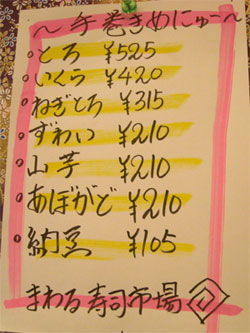 ～手巻きめにゅー～
・とろ ¥525
・いくら ¥420
・ねぎとろ ¥315
・ずわい ¥210
・山芋 ¥210
・あぼがど ¥210
・納豆 ¥105
まわる寿司市場